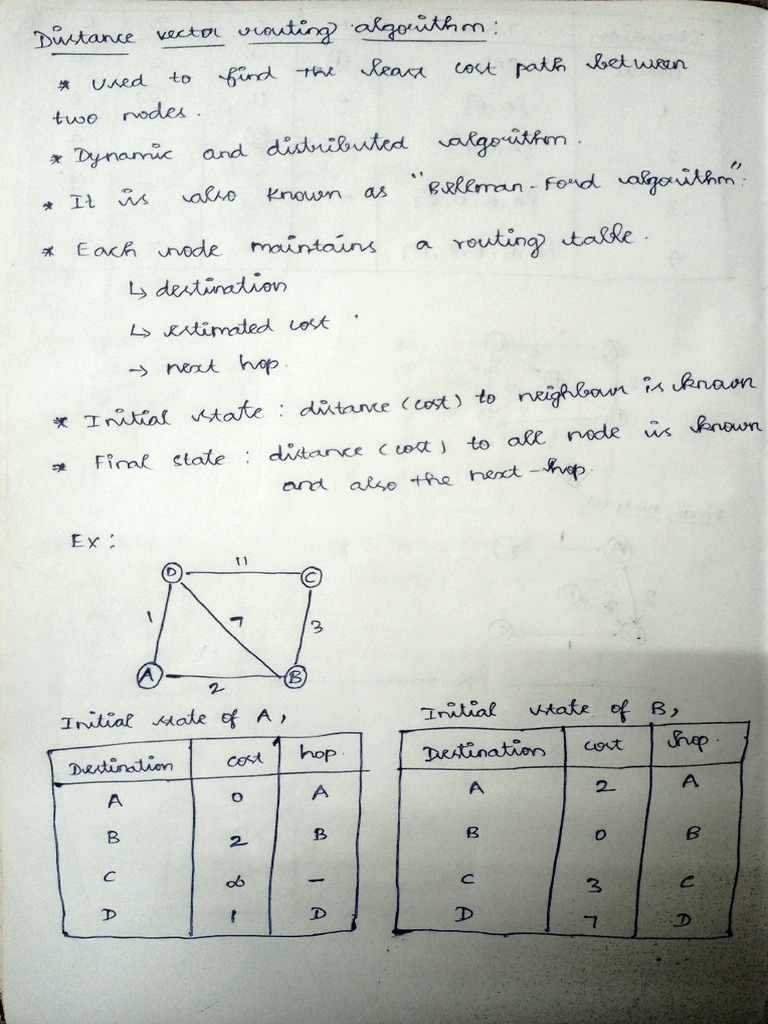 Distance vector routing algorithm:
* used to find the least cost path between
two nodes.
* Dynamic and distributed algorithm.
* It is also known as "Bellman-Ford algorithm".
* Each node maintains a routing table.
↳ destination
↳ estimated cost
→ next hop.
* Initial state : distance (cost) to neighbour is known
* Final state : distance (cost) to all node is known
and also the next-hop.
Ex:
D 11 C
1 7 3
A 2 B
Initial state of A,
Destination cost hop.
A 0 A
B 2 B
C ∞ –
D 1 D
Initial state of B,
Destination cost hop.
A 2 A
B 0 B
C 3 C
D 7 D